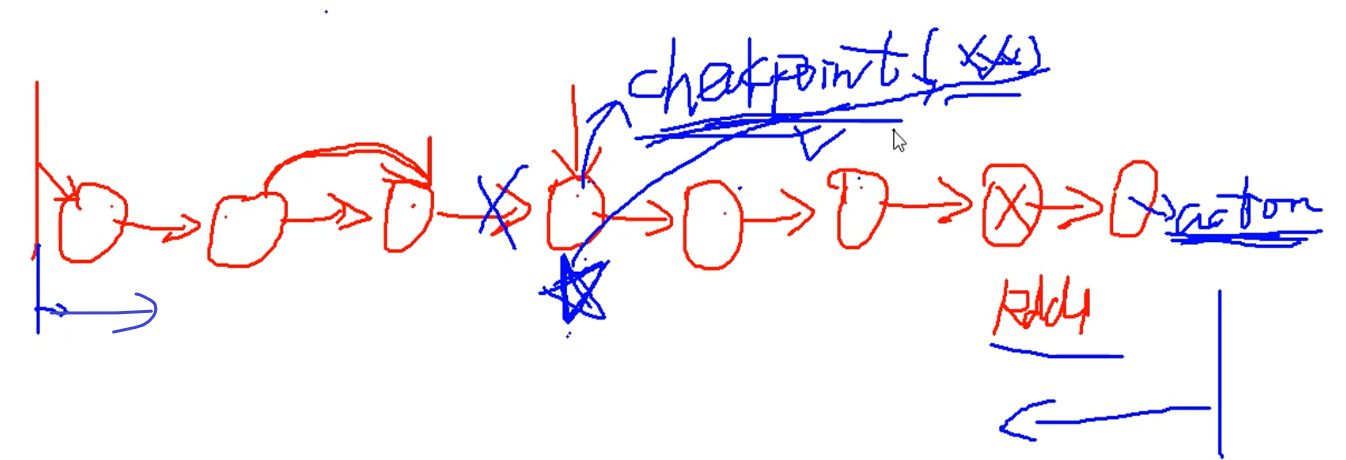 checkpoint(xxx)
action
Rdd1